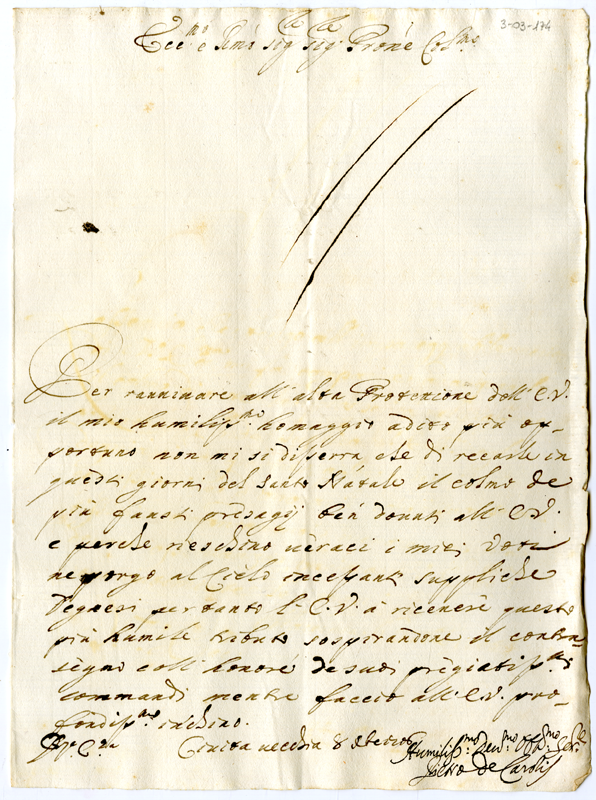 3-03-174
Ecc.mo e Rmo sig.re sig.re Prone Col.mo
Per ravvivare all'alta Protezione dell'E.V.
il mio humiliss.mo homaggio adito più op-
portuno non mi si disserra che di recarle in
questi giorni del santo Natale il colmo de
più fausti presagij ben donuti all'E.V.
e perche rieschino veraci i miei voti
ne porgo al Cielo incessanti suppliche
Degnesi per tanto l'E.V. à ricevere questo
più humile tributo sospirandone il contra-
segno coll'honore de suoi pregiatiss.mi
commandi mentre faccio all'E.V. pro-
fondiss.mo inchino.
Civita vecchia 8
Humiliss.mo Dev.mo Obb.mo Ser.re
Pietro de Carolis